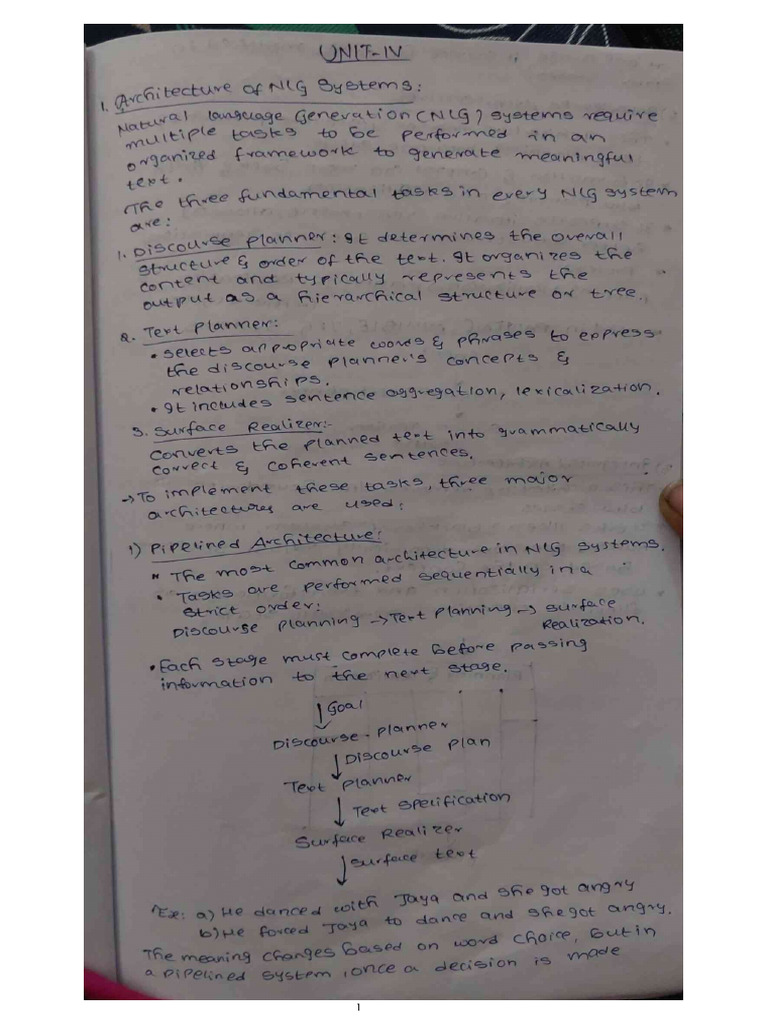 UNIT-IV
1. Architecture of NLG Systems:
Natural language Generation (NLG) systems require
multiple tasks to be performed in an
organized framework to generate meaningful
text.
The three fundamental tasks in every NLG system
are:
1. Discourse planner: It determines the overall
structure & order of the text. It organizes the
content and typically represents the
output as a hierarchical structure or tree.
2. Text planner:
• selects appropriate words & phrases to express
the discourse planner's concepts &
relationships.
• It includes sentence aggregation, lexicalization.
3. Surface Realizer:-
Converts the planned text into grammatically
correct & coherent sentences.
→ To implement these tasks, three major
architectures are used:
1) Pipelined Architecture:
• The most common architecture in NLG systems.
• Tasks are performed sequentially in a
strict order:
Discourse planning → Text planning → surface
Realization.
• Each stage must complete before passing
information to the next stage.
↓ Goal
Discourse-planner
↓ Discourse plan
Text planner
↓ Text specification
Surface Realizer
↓ surface text
Ex: a) He danced with Jaya and she got angry
b) He forced Jaya to dance and she got angry.
The meaning changes based on word choice, but in
a pipelined system, once a decision is made
1